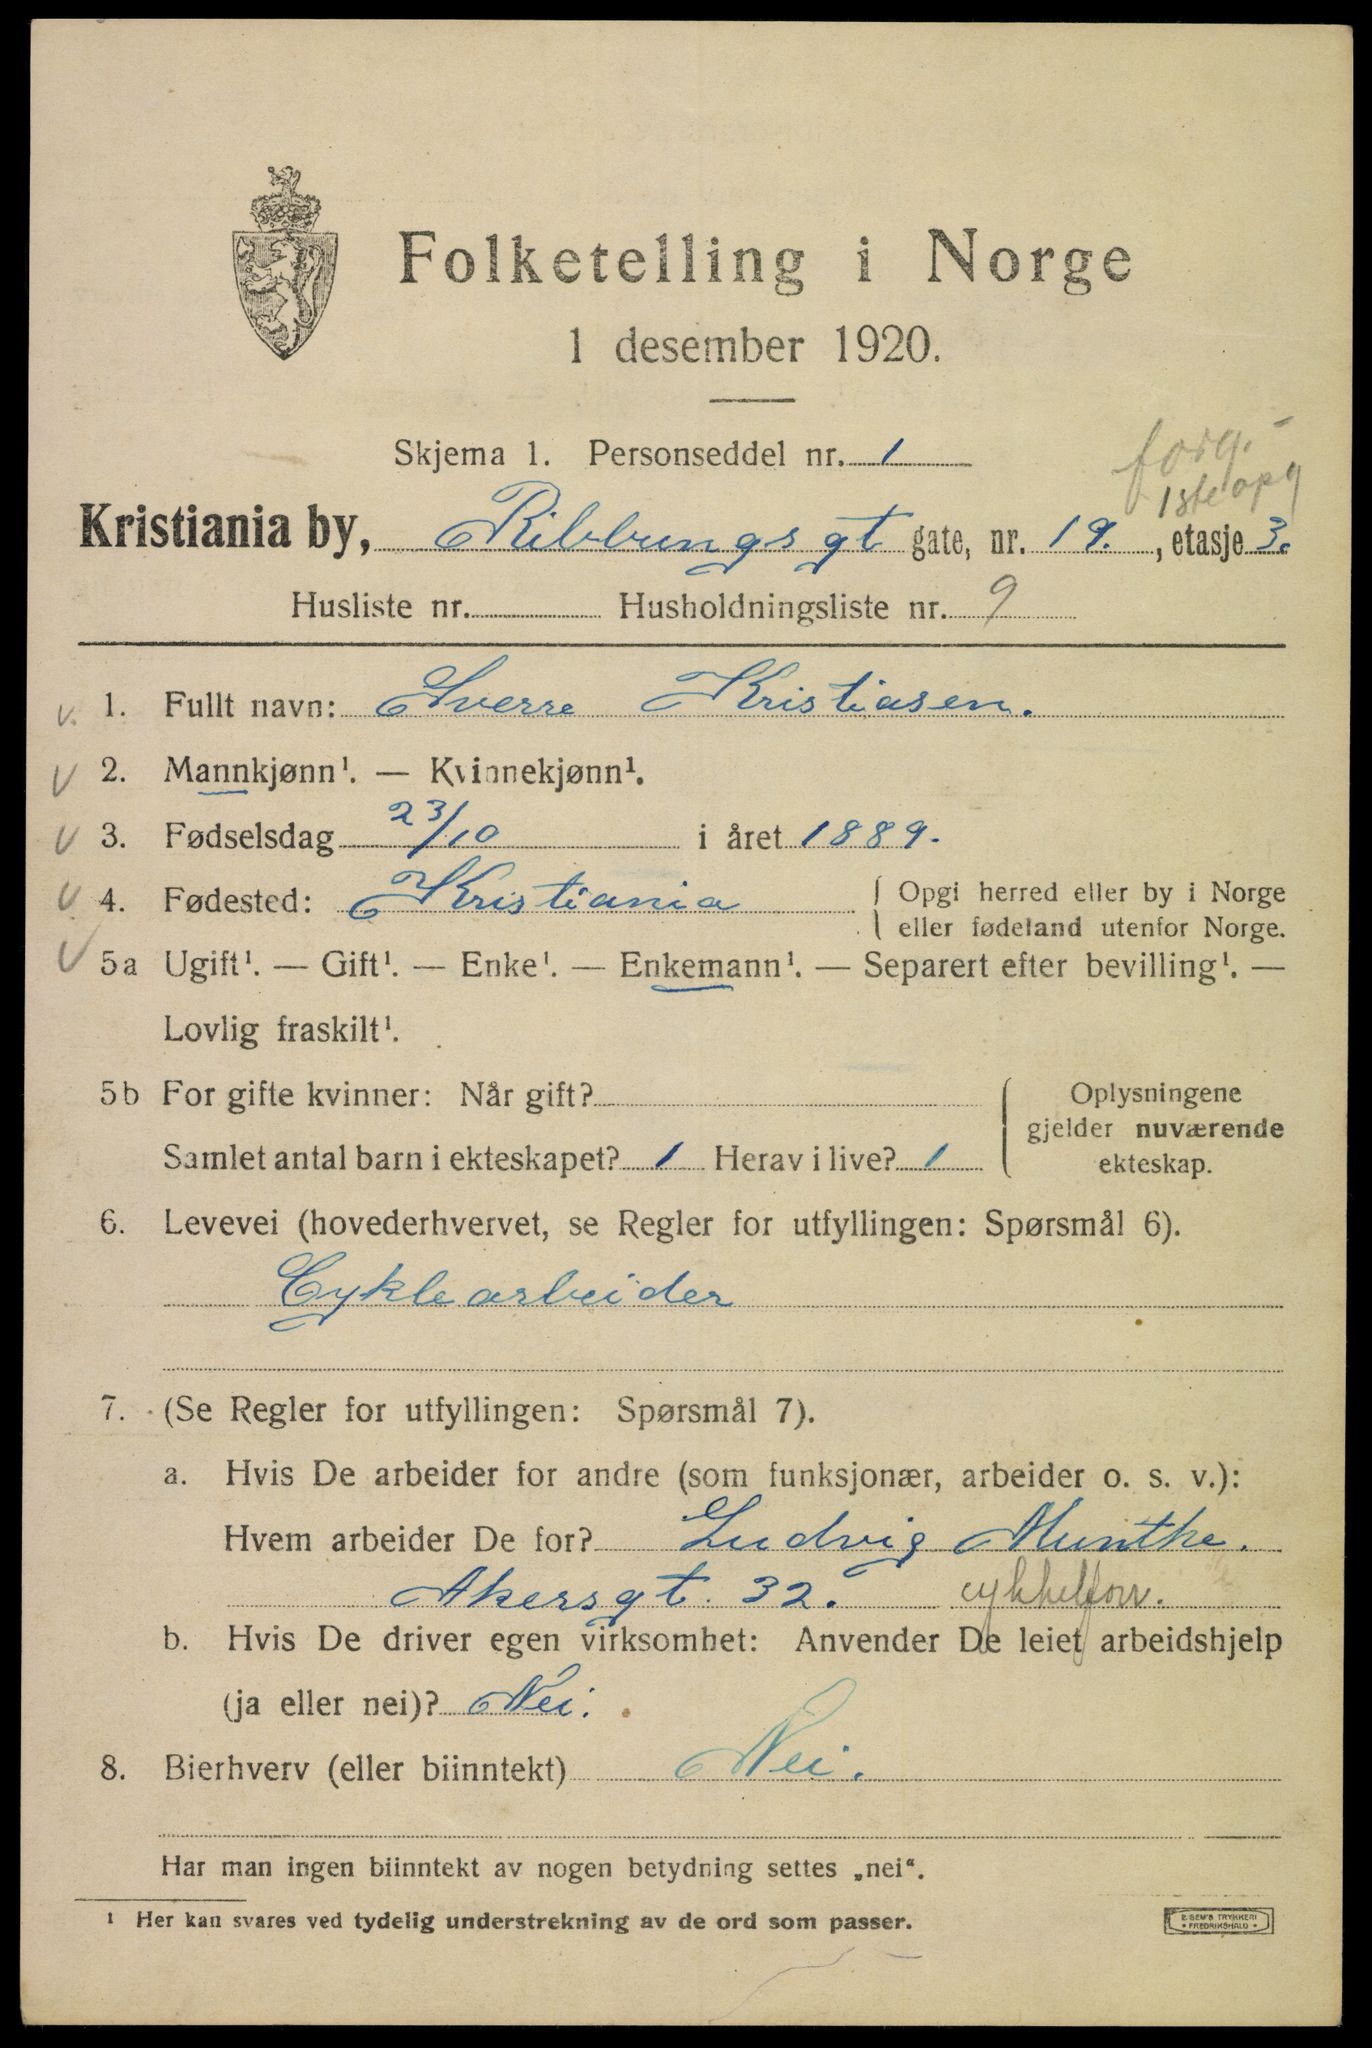 Folketelling i Norge
1 desember 1920.
Skjema 1. Personseddel nr. 1
forg.
1ste opg
Kristiania by, Ribbungsgt gate, nr. 19., etasje 3.
Husliste nr. Husholdningsliste nr. 9
v. 1. Fullt navn: Sverre Kristiasen.
v 2. Mannkjønn¹. — Kvinnekjønn¹.
v 3. Fødselsdag 23/10 i året 1889.
v 4. Fødested: Kristiania { Opgi herred eller by i Norge
eller fødeland utenfor Norge.
v 5a Ugift¹. — Gift¹. — Enke¹. — Enkemann¹. — Separert efter bevilling¹. —
Lovlig fraskilt¹.
5b For gifte kvinner: Når gift? { Oplysningene
gjelder nuværende
Samlet antal barn i ekteskapet? 1 Herav i live? 1 ekteskap.
6. Levevei (hovederhvervet, se Regler for utfyllingen: Spørsmål 6).
Cyklearbeider
7. (Se Regler for utfyllingen: Spørsmål 7).
a. Hvis De arbeider for andre (som funksjonær, arbeider o. s. v.):
Hvem arbeider De for? Ludvig Munthe.
Akersgt. 32. cykkelforr.
b. Hvis De driver egen virksomhet: Anvender De leiet arbeidshjelp
(ja eller nei)? Nei.
8. Bierhverv (eller biinntekt) Nei.
Har man ingen biinntekt av nogen betydning settes „nei“.
¹ Her kan svares ved tydelig understrekning av de ord som passer.
E. SEM'S TRYKKERI
• FREDRIKSHALD •